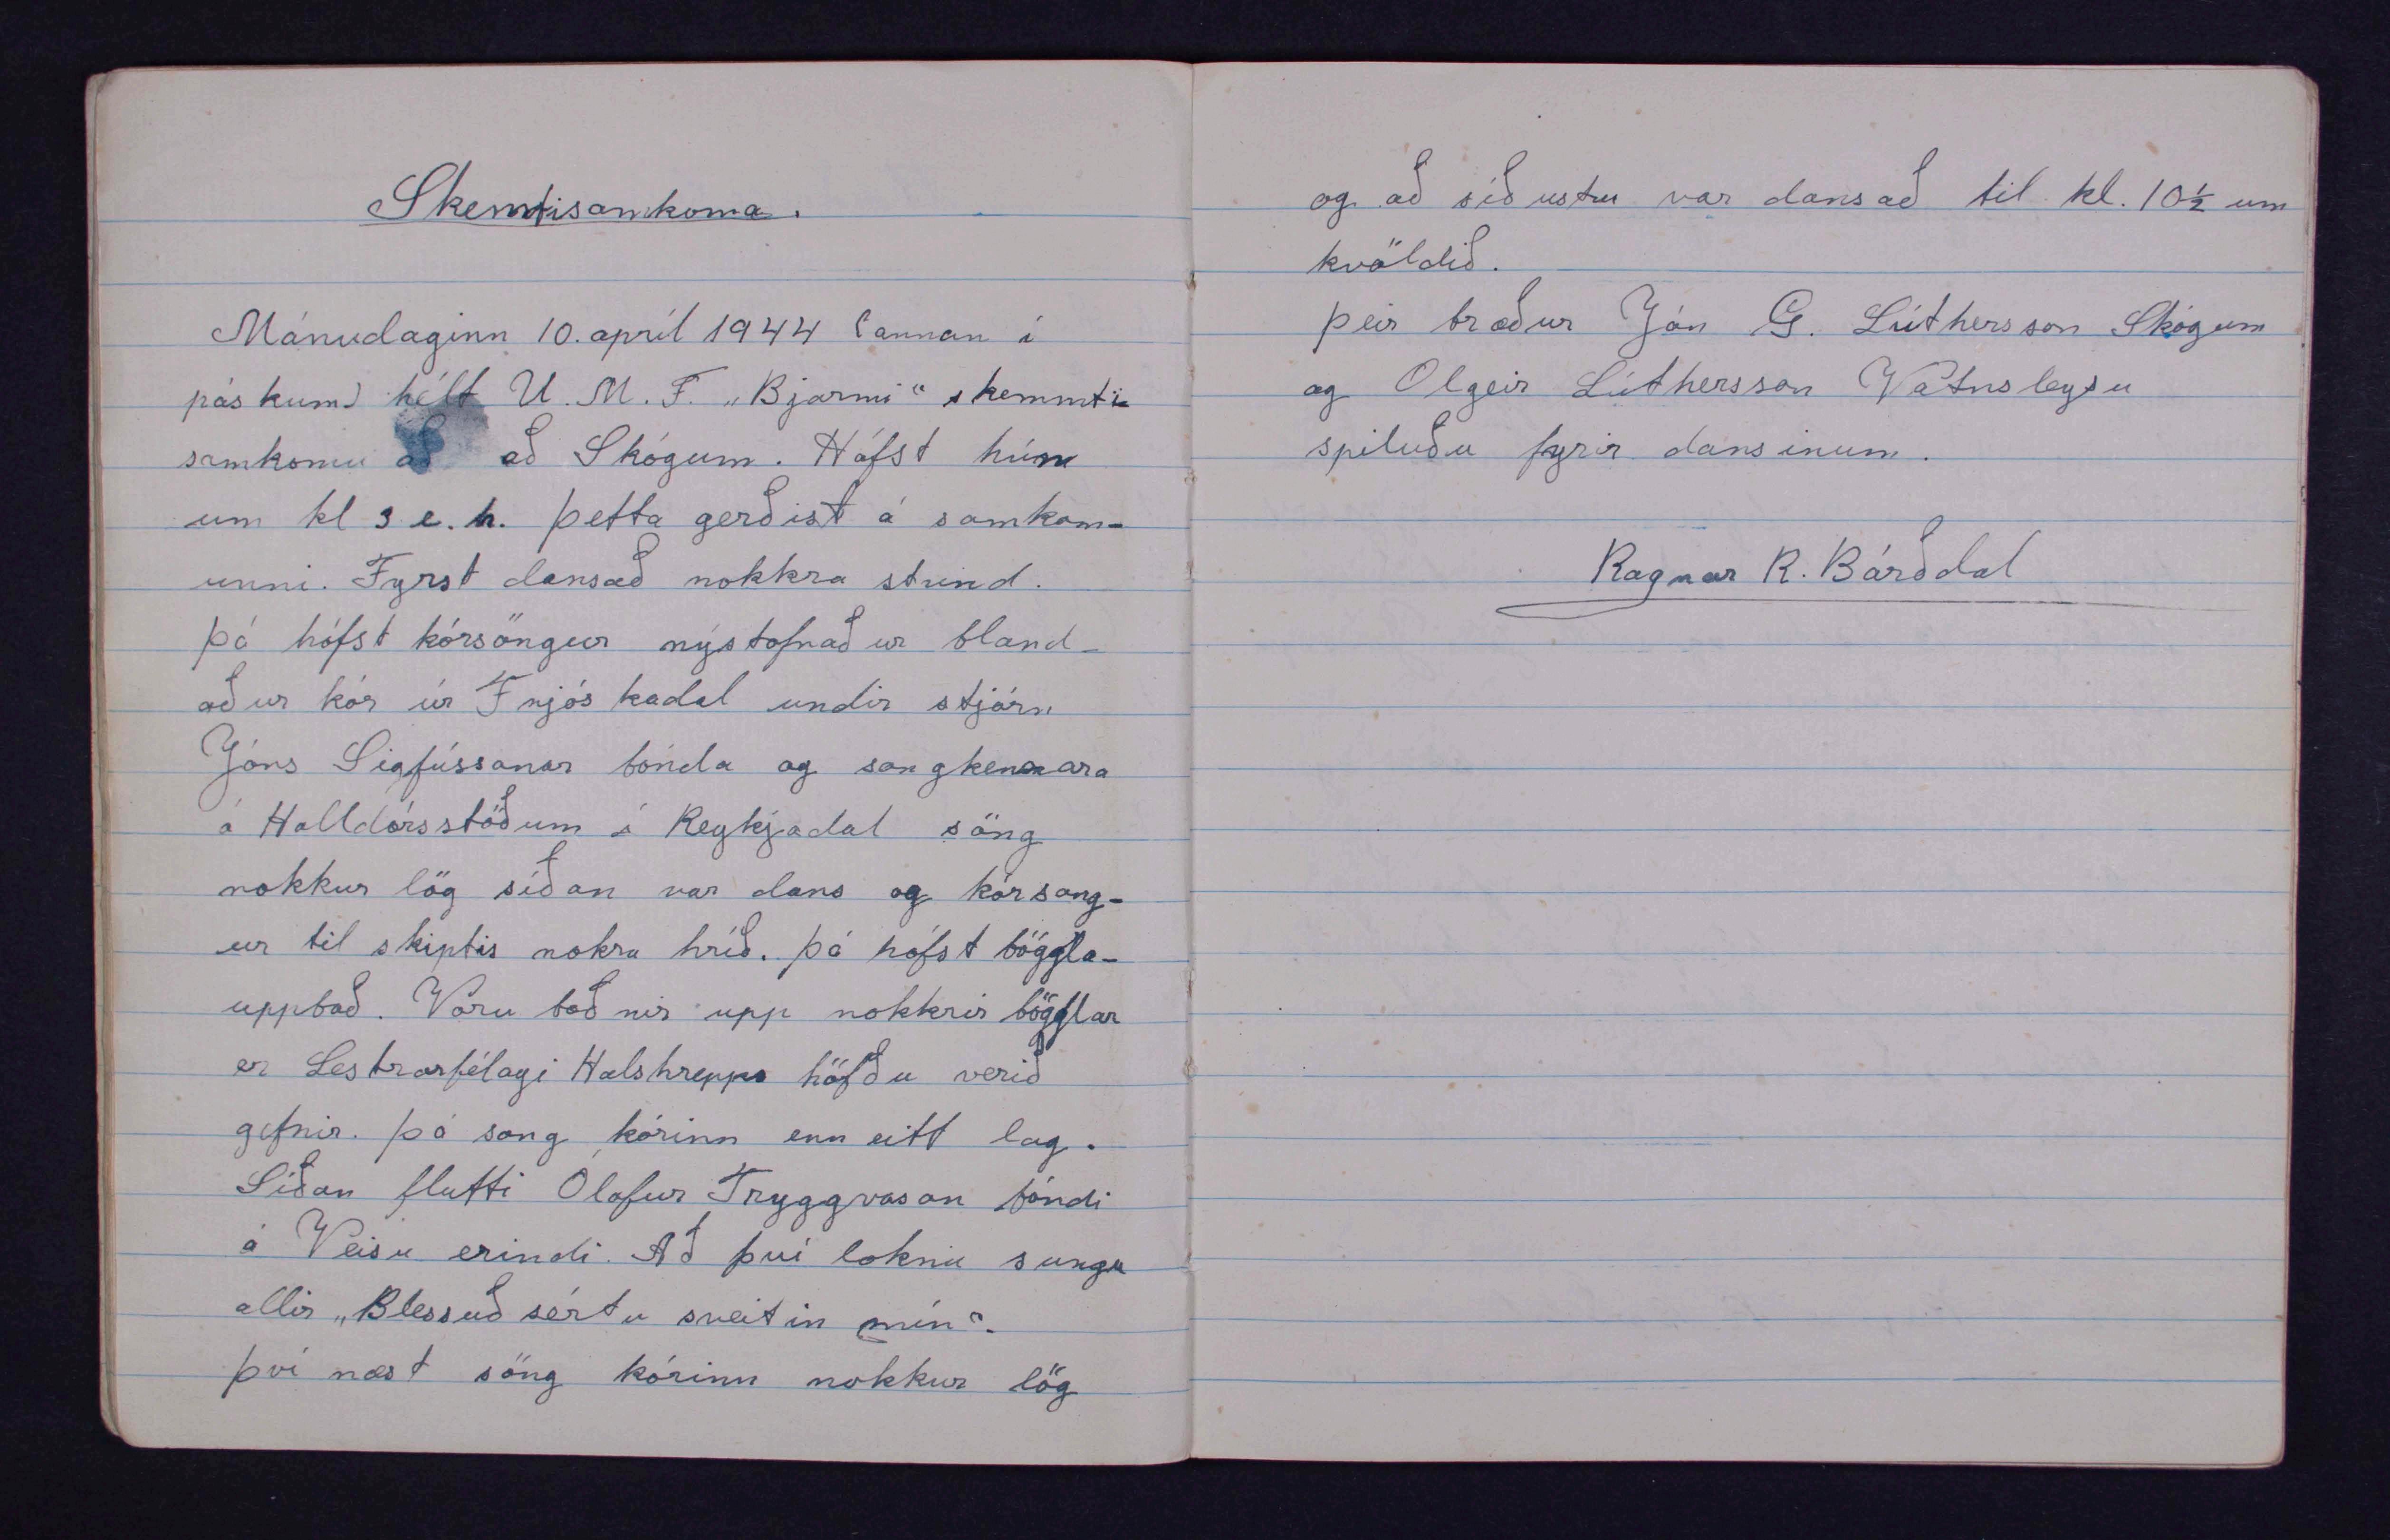 Skemtisamkoma.
Mánudaginn 10. apríl 1944 (annan í
páskum) hélt U. M. F. „Bjarmi“ skemmti-
samkomu að að Skógum. Hófst hún
um kl 3 e. h. Þetta gerðist á samkom-
unni. Fyrst dansað nokkra stund.
Þá hófst kórsöngur nýstofnaður bland-
aður kór úr Fnjóskadal undir stjórn
Jóns Sigfússonar bónda og sangkennara
á Halldórsstöðum í Reykjadal söng
nokkur lög síðan var dans og kórsong-
ur til skiptis nokra hríð. Þá hófst böggla-
uppboð. Voru boðnir upp nokkrir bögglar
er Lestrarfélagi Halshrepps höfðu verið
gefnir. Þá song kórinn enn eitt lag.
Síðan flutti Ólafur Tryggvason bóndi
á Veisu erindi. Að því loknu sungu
allir „Blessuð sértu sveitin mín“.
Því næst söng kórinn nokkur lög
og að síðustu var dansað til kl. 10½ um
kvöldið.
Þeir bræður Jón G. Lúthersson Skógum
og Olgeir Lúthersson Vatnsleysu
spiluðu fyrir dansinum.
Ragnar R. Bárðdal